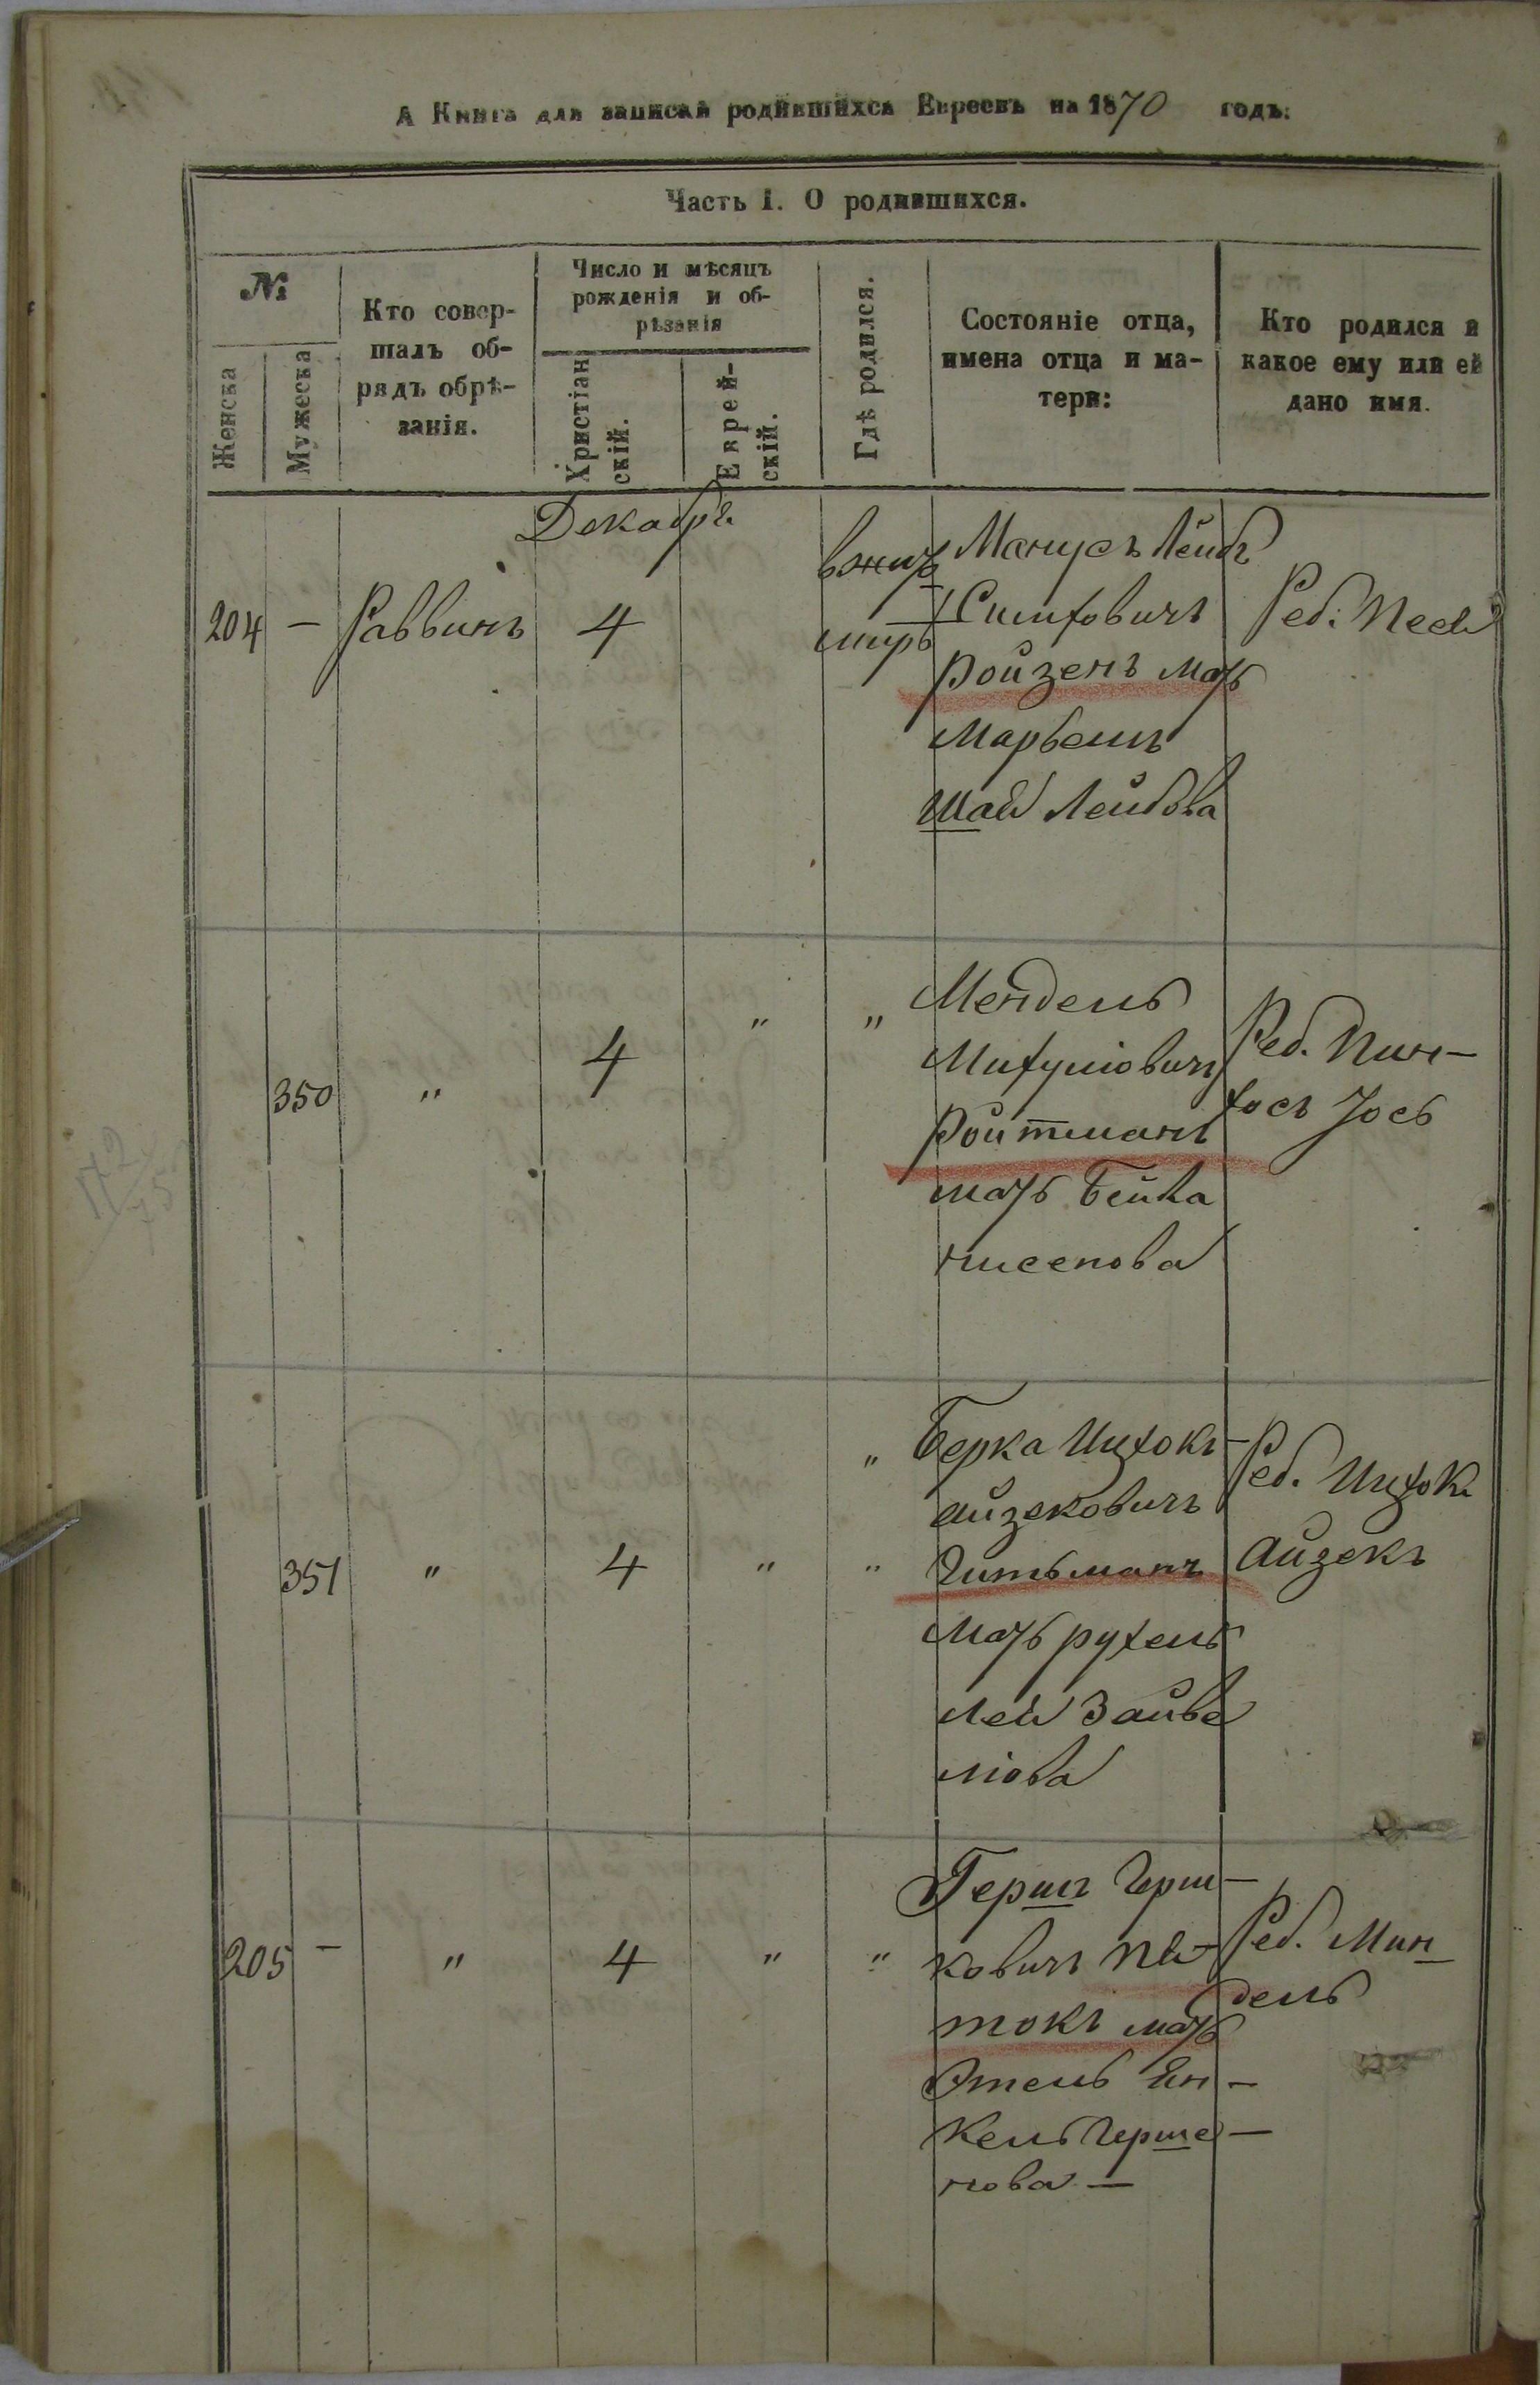 А Книга для записки родившихся Евреевъ на 1870 годъ:
Часть I. О родившихся.
№
Женска
Мужеска
Кто совер-
шалъ об-
рядъ обрѣ-
занія.
Число и мѣсяцъ
рожденія и об-
рѣзанія
Христіан
скій.
Еврей-
скій.
Гдѣ родился.
Состояніе отца,
имена отца и ма-
тери:
Кто родился и
какое ему или ей
дано имя.
Декабря
204 — Раввинъ 4
вжит
миръ
Манусъ Лейбъ
Симховичъ
Ройзенъ мать
Марьемъ
Шая Лейбова
Реб: Песя
350 " 4 " "
Мендель
Михуніовичъ
Ройтманъ
мать Бейла
нисенова
Реб. Пин-
хосъ Іось
351 " 4 " " "
Берка Ицхокъ-
айзековичъ
Гитьманъ
мать рухель
лея Зайве
лiова
Реб. Ицхокъ
Айзекъ
205 — " 4 " "
Гершъ Герш-
ковичъ Пя-
токъ мать
Этель Ян-
кель Герше-
нова —
Реб. Мин
дель